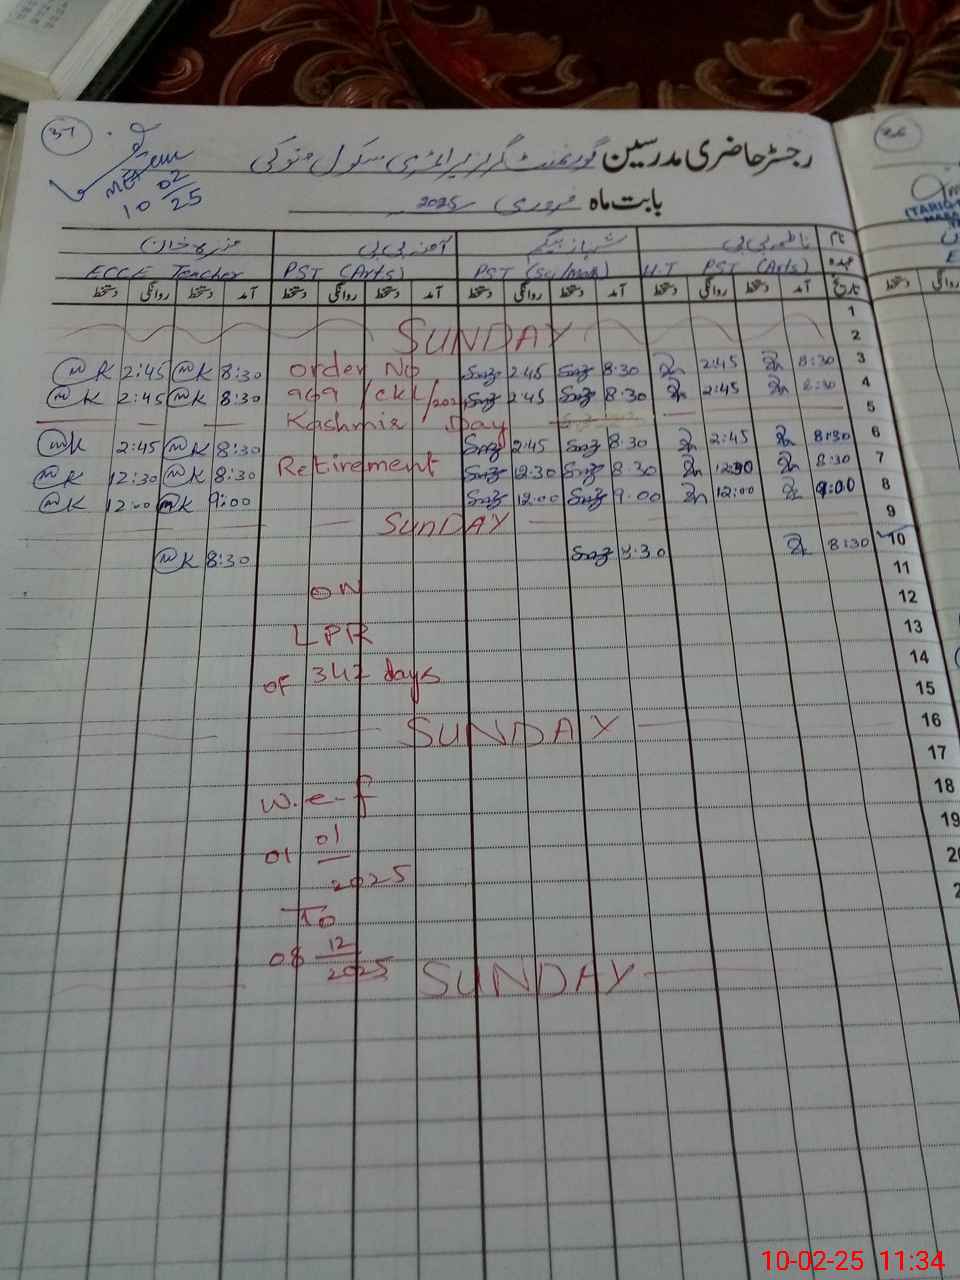 37
26
MEA
10 02/25
رجسٹر حاضری مدرسین گورنمنٹ گرلز پرائمری سکول منوکی
بابت ماہ فروری 2025
نام ناظمہ بی بی شہناز بیگم آمنہ بی بی
عہدہ H.T PST (Arts) PST (Sci/math) PST (Arts) ECCE Teacher
تاریخ آمد دستخط روانگی دستخط آمد دستخط روانگی دستخط آمد دستخط روانگی دستخط آمد دستخط روانگی دستخط
1
SUNDAY 2
2:45 8:30 Order No 2:45 8:30 2:45 8:30 3
2:45 8:30 969/CKL/202 2:45 8:30 2:45 8:30 4
Kashmir Day 5
2:45 8:30 2:45 8:30 2:45 8:30 6
12:30 8:30 Retirement 12:30 8:30 12:30 8:30 7
12:00 9:00 12:00 9:00 12:00 9:00 8
SUNDAY 9
8:30 8:30 8:30 10
11
ON 12
LPR 13
of 342 days 14
15
SUNDAY 16
17
w.e.f 18
01 01/2025 19
To
08 12/2025
SUNDAY
10-02-25 11:34